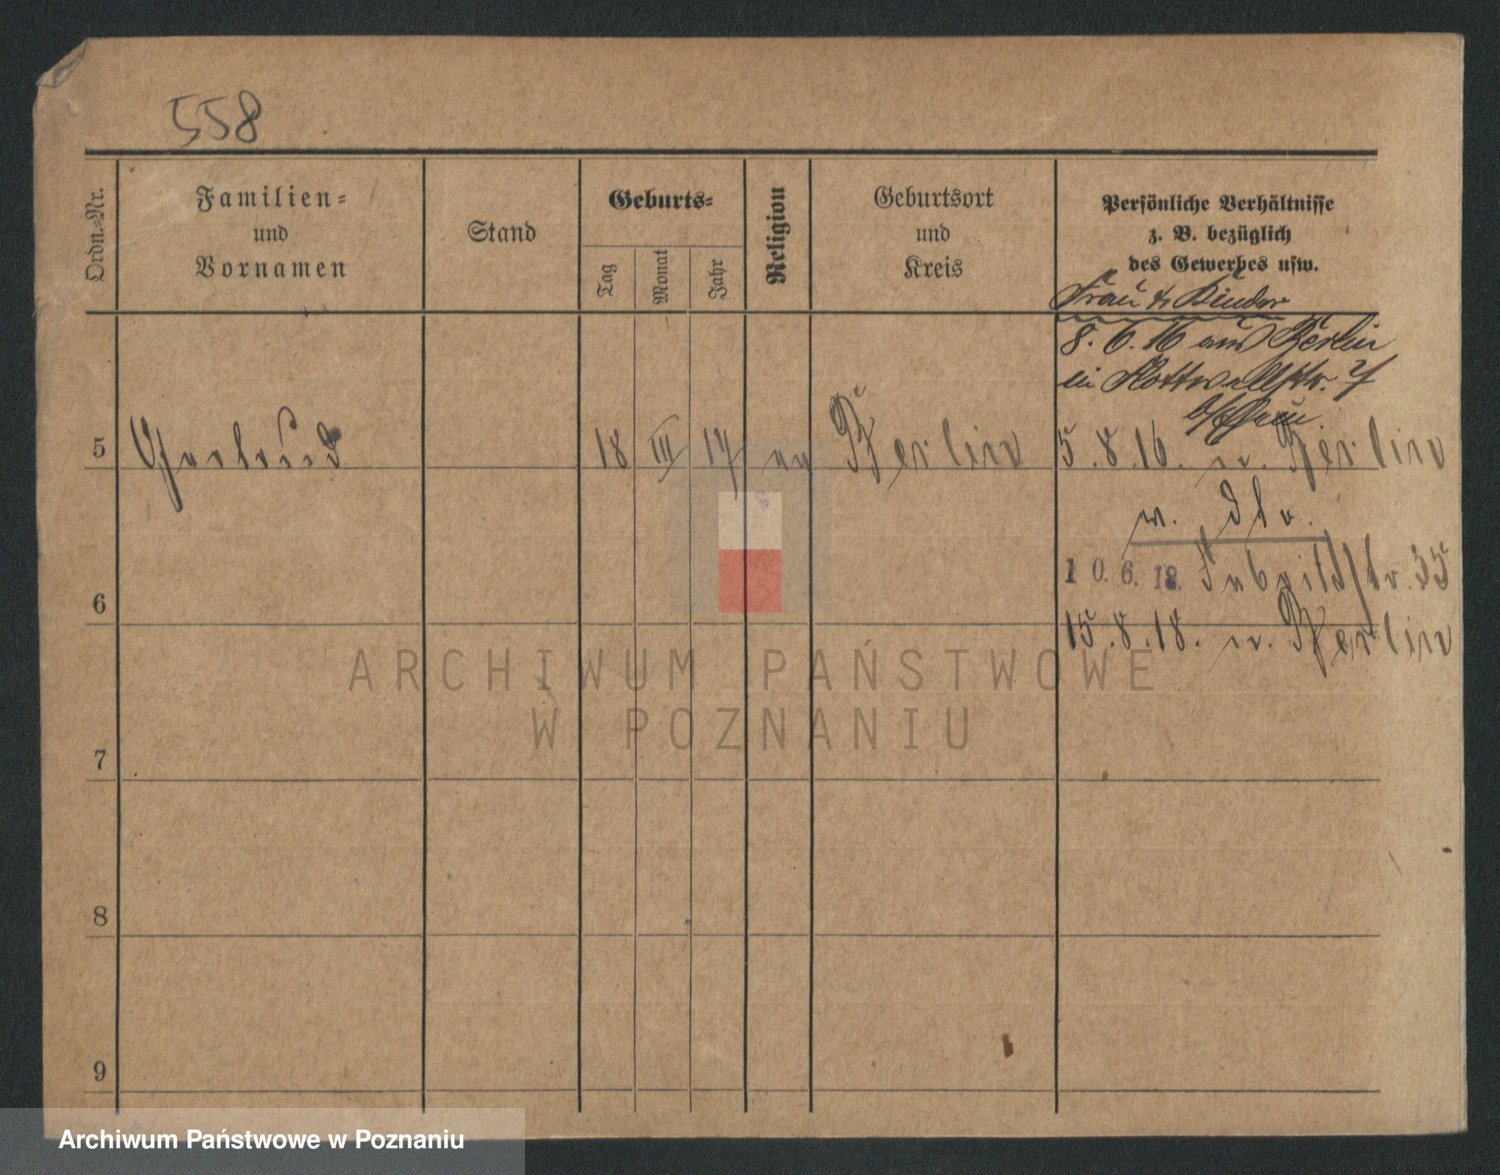 558
Ordn.-Nr.
Familien-
und
Vornamen
Stand
Geburts-
Tag
Monat
Jahr
Religion
Geburtsort
und
Kreis
Persönliche Verhältnisse
z. B. bezüglich
des Gewerbes usw.
Frau & Kinder
8. 6. 16 aus Berlin
in Kottwellstr. 7
5 Gertrud 18 III 17 Berlin 5. 8. 16. n. Berlin
10. 6. 18.
6 15. 8. 18. n. Berlin
ARCHIWUM PAŃSTWOWE
W POZNANIU
7
8
9
Archiwum Państwowe w Poznaniu